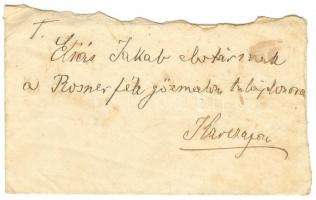 T.
Eliás Jakab elvtársnak
a Rosner féle gőzmalom tulajdonosa
Karczagon